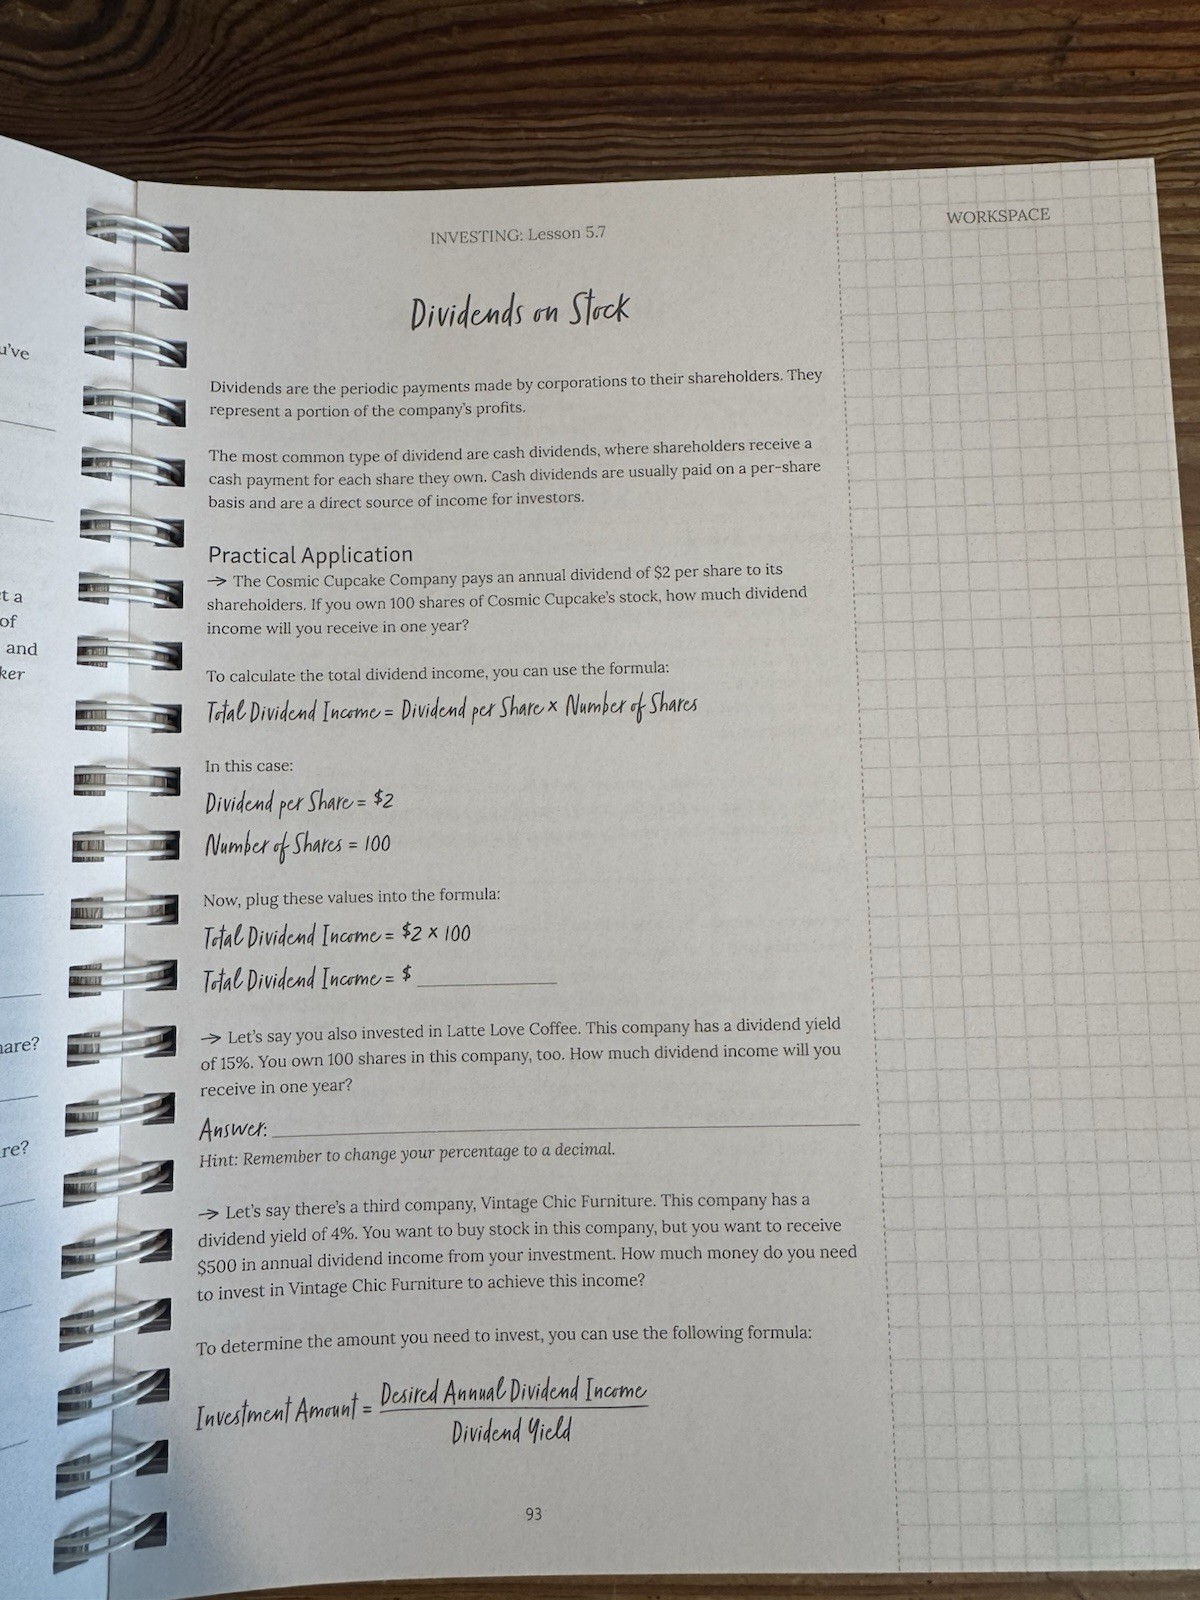 u've
t a
of
and
ker
are?
re?
INVESTING: Lesson 5.7
WORKSPACE
Dividends on Stock
Dividends are the periodic payments made by corporations to their shareholders. They
represent a portion of the company's profits.
The most common type of dividend are cash dividends, where shareholders receive a
cash payment for each share they own. Cash dividends are usually paid on a per-share
basis and are a direct source of income for investors.
Practical Application
→ The Cosmic Cupcake Company pays an annual dividend of $2 per share to its
shareholders. If you own 100 shares of Cosmic Cupcake's stock, how much dividend
income will you receive in one year?
To calculate the total dividend income, you can use the formula:
Total Dividend Income = Dividend per Share × Number of Shares
In this case:
Dividend per Share = $2
Number of Shares = 100
Now, plug these values into the formula:
Total Dividend Income = $2 × 100
Total Dividend Income = $
→ Let's say you also invested in Latte Love Coffee. This company has a dividend yield
of 15%. You own 100 shares in this company, too. How much dividend income will you
receive in one year?
Answer:
Hint: Remember to change your percentage to a decimal.
→ Let's say there's a third company, Vintage Chic Furniture. This company has a
dividend yield of 4%. You want to buy stock in this company, but you want to receive
$500 in annual dividend income from your investment. How much money do you need
to invest in Vintage Chic Furniture to achieve this income?
To determine the amount you need to invest, you can use the following formula:
Investment Amount = Desired Annual Dividend Income
Dividend Yield
93